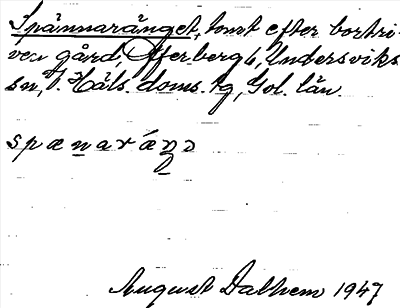 Spännaränget, tomt efter bortri-
ven gård, Offerberg 6, Undersviks
sn, V. Häls. doms. tg, Gvl. län.
August Dalhem 1947